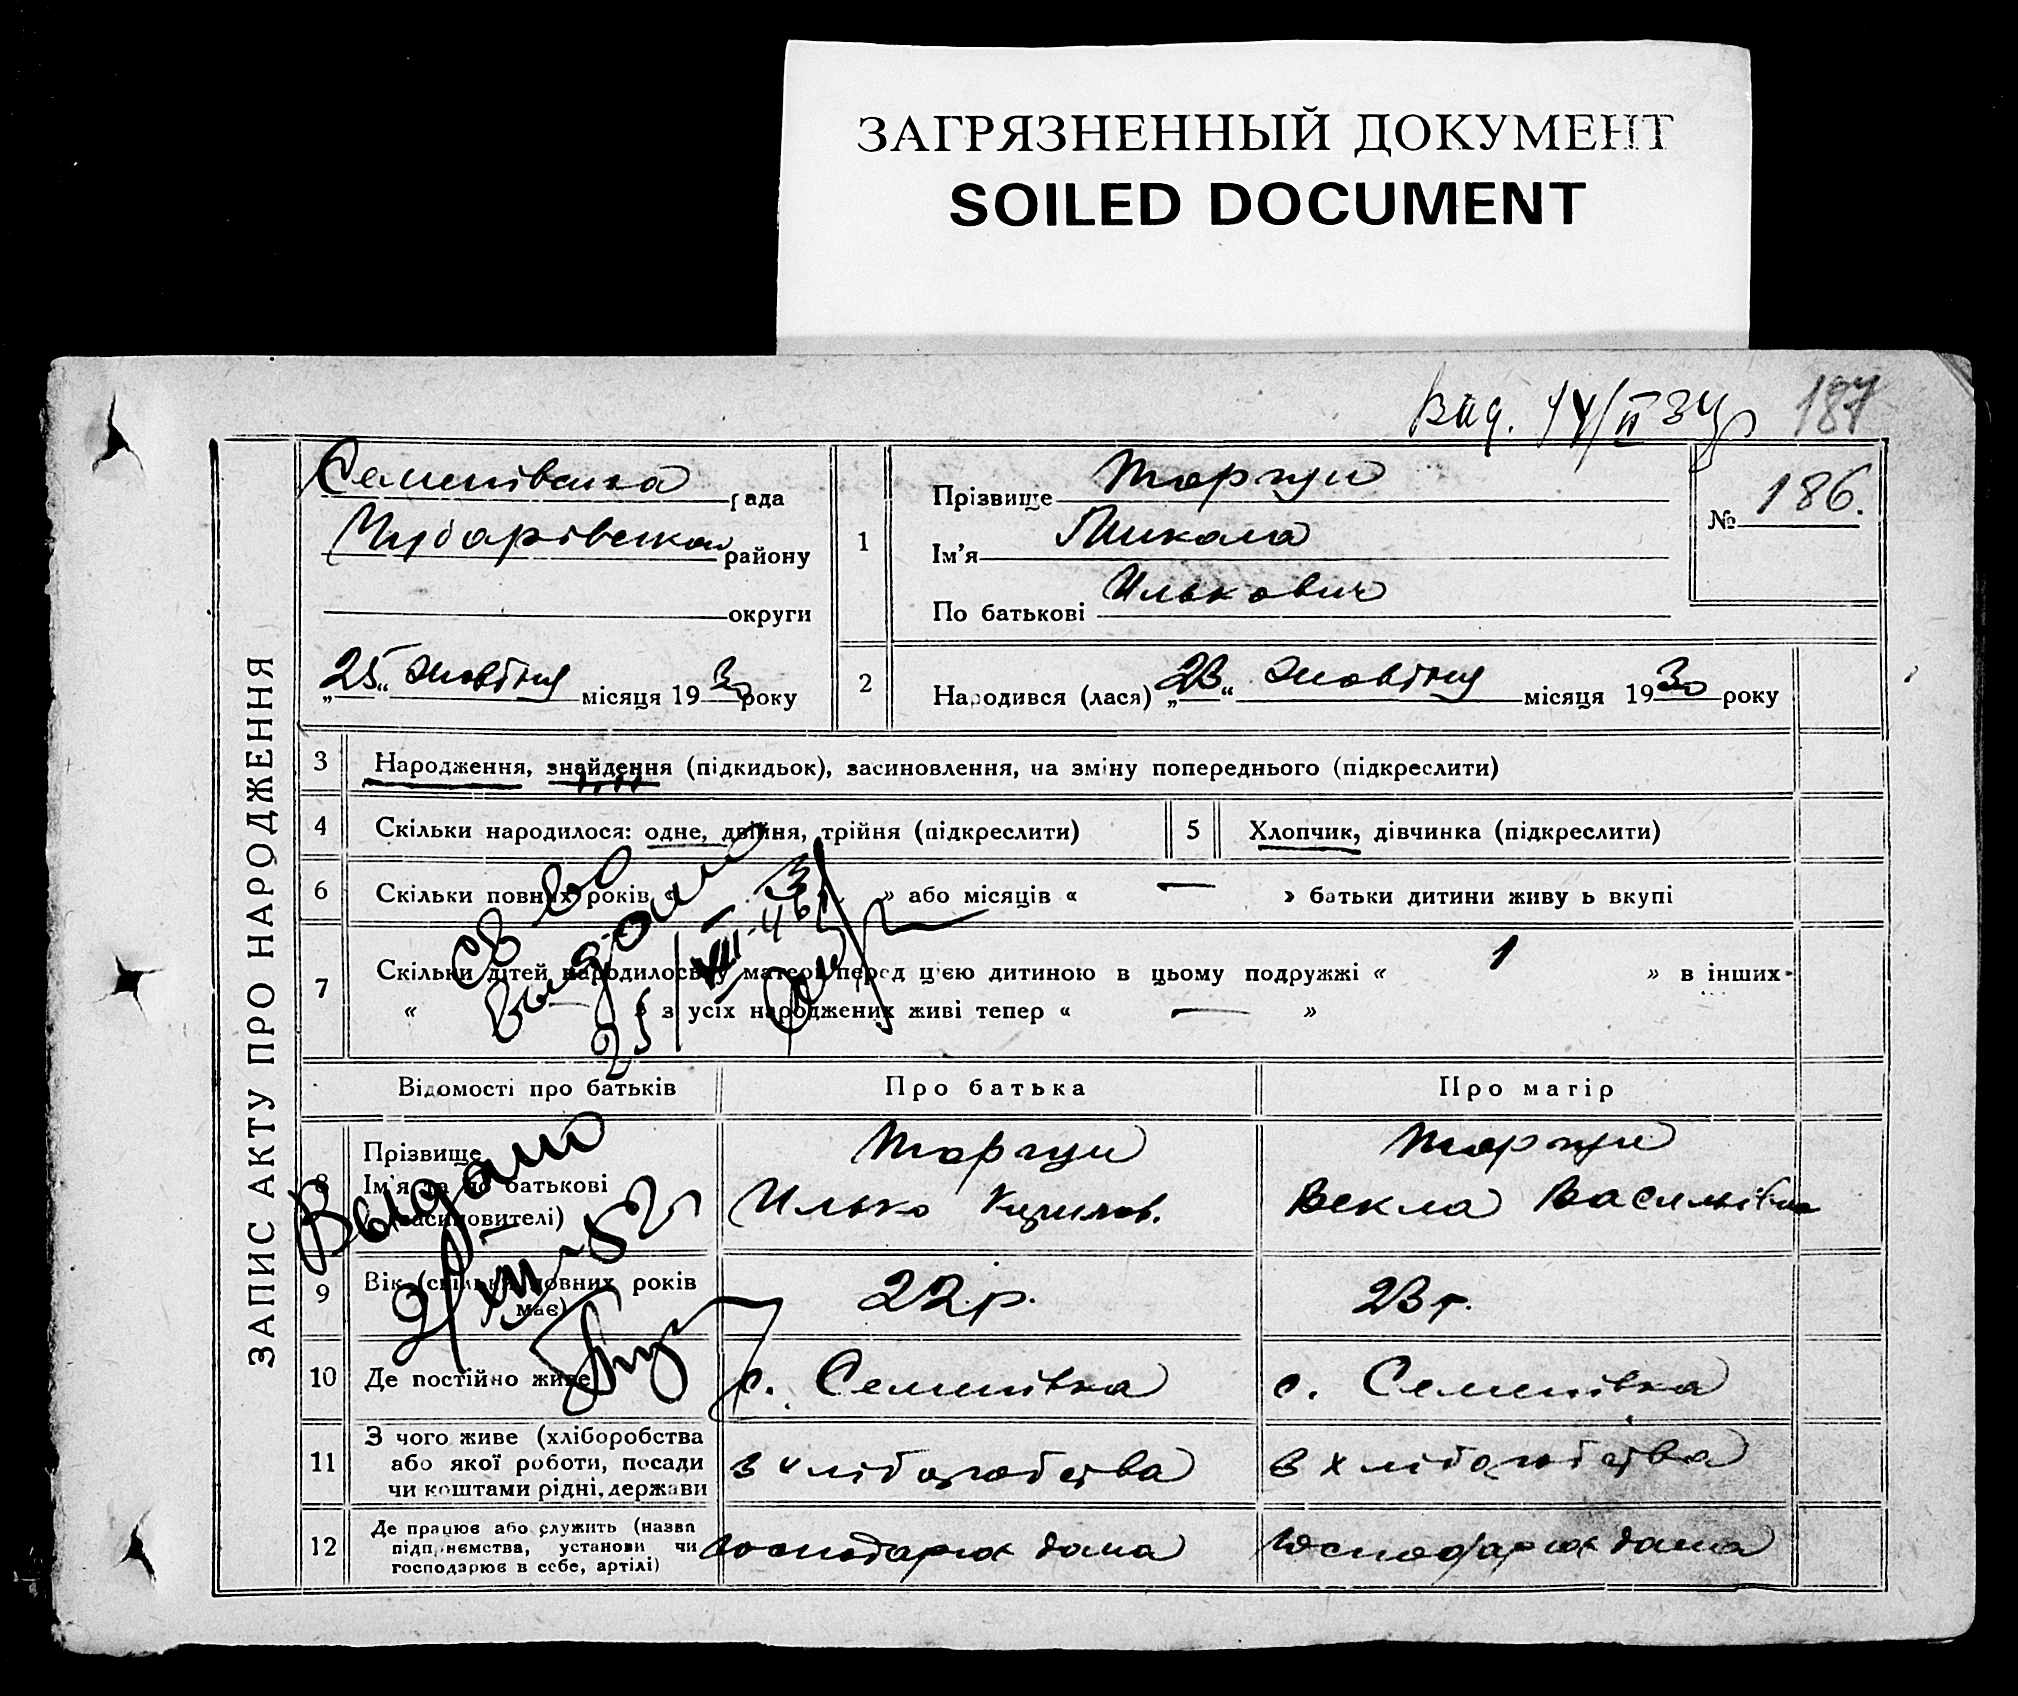 ЗАГРЯЗНЕННЫЙ ДОКУМЕНТ
SOILED DOCUMENT
Вид. 14/II 34р
187
ЗАПИС АКТУ ПРО НАРОДЖЕННЯ
Семенівська рада
району
округи
„25“ жовтня місяця 1930 року
1
Прізвище
Ім'я Микола
По батькові Илькович
№ 186.
2
Народився (лася) „23“ жовтня місяця 1930 року
3 Народження, знайдення (підкидьок), засиновлення, на зміну попереднього (підкреслити)
4 Скільки народилося: одне, двійня, трійня (підкреслити)
5 Хлопчик, дівчинка (підкреслити)
6 Скільки повних років « » або місяців « — » батьки дитини живуть вкупі
7 Скільки дітей народилось у матері перед цією дитиною в цьому подружжі « 1 » в інших
« — » з усіх народжених живі тепер « — »
Св во
выдано
25/VIII-46
Відомості про батьків
Про батька
Про матір
8 Прізвище
Ім'я та по батькові
(засиновителі)
Илько
Векла Васильівна
Выдано
9/XII-52
9 Вік (скільки повних років має)
22 р.
23 р.
10 Де постійно живе
с. Семенівка
с. Семенівка
11 З чого живе (хліборобства
або якої роботи, посади
чи коштами рідні, держави
з хліборобства
з хліборобства
12 Де працює або служить (назва
підприємства, установи чи
господарює в себе, артілі)
господарює дома
господарює дома